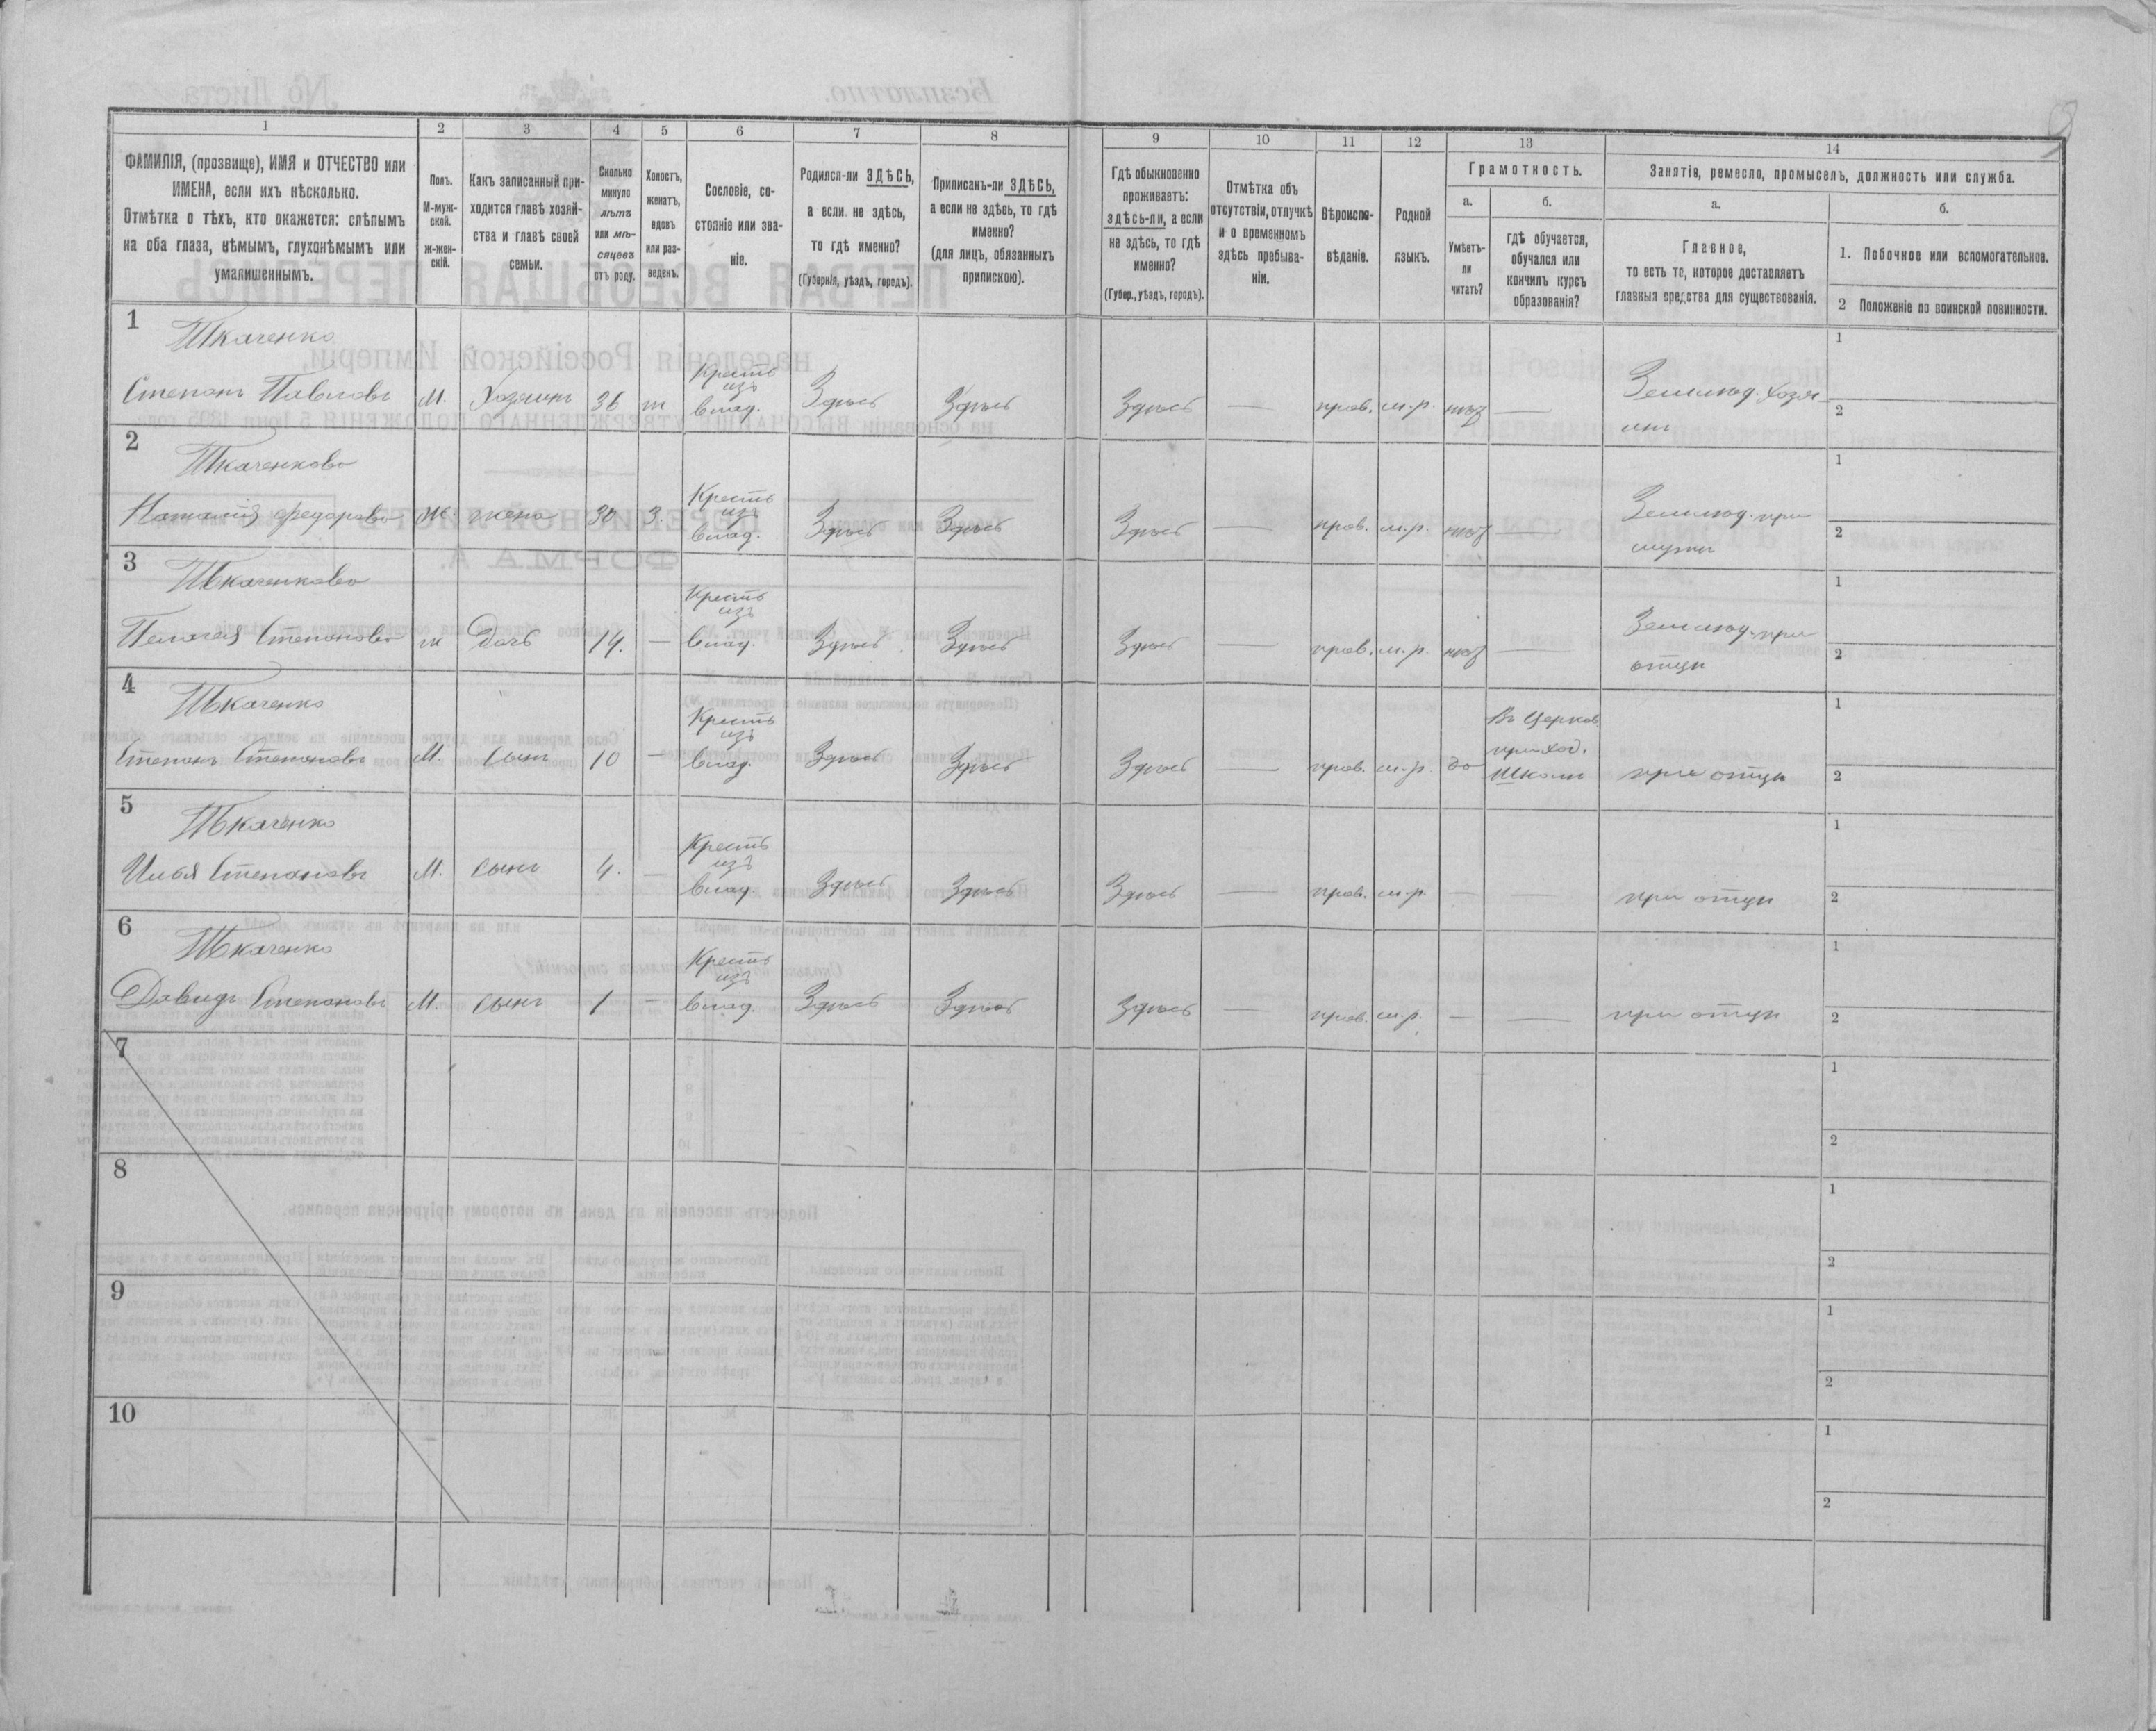 1 2 3 4 5 6 7 8 9 10 11 12 13 14
ФАМИЛІЯ, (прозвище), ИМЯ и ОТЧЕСТВО или
ИМЕНА, если ихъ нѣсколько.
Отмѣтка о тѣхъ, кто окажется: слѣпымъ
на оба глаза, нѣмымъ, глухонѣмымъ или
умалишеннымъ.
Полъ.
М-муж-
ской.
ж-жен-
скій.
Какъ записанный при-
ходится главѣ хозяй-
ства и главѣ своей
семьи.
Сколько
минуло
лѣтъ
или мѣ-
сяцевъ
отъ роду.
Холостъ,
женатъ,
вдовъ
или раз-
веденъ.
Сословіе, со-
стояніе или зва-
ніе.
Родился-ли ЗДѢСЬ,
а если не здѣсь,
то гдѣ именно?
(Губернія, уѣздъ, городъ).
Приписанъ-ли ЗДѢСЬ,
а если не здѣсь, то гдѣ
именно?
(для лицъ, обязанныхъ
припискою).
Гдѣ обыкновенно
проживаетъ:
здѣсь-ли, а если
не здѣсь, то гдѣ
именно?
(Губер., уѣздъ, городъ).
Отмѣтка объ
отсутствіи, отлучкѣ
и о временномъ
здѣсь пребыва-
ніи.
Вѣроиспо-
вѣданіе.
Родной
языкъ.
Грамотность.
а.
Умѣетъ-
ли
читать?
б.
гдѣ обучается,
обучался или
кончилъ курсъ
образованія?
Занятія, ремесло, промыселъ, должность или служба.
а.
Главное,
то есть то, которое доставляетъ
главныя средства для существованія.
б.
1. Побочное или вспомогательное.
2 Положеніе по воинской повинности.
1
Ткаченко
Степанъ Павловъ М. Хозяинъ 36 ж Крестъ
изъ
влад. Здѣсь Здѣсь Здѣсь — прав. м.р. нѣтъ — Землед. хозя
инъ
1
2
2
Ткаченкова
Наталія Федорова Ж. жена 30 З. Крестъ
изъ
влад. Здѣсь Здѣсь Здѣсь — прав. м.р. нѣтъ — Землед. при
мужи
1
2
3
Ткаченкова
Пелагея Степанова ж Дочь 14. — Крестъ
изъ
влад. Здѣсь Здѣсь Здѣсь — прав. м.р. нѣтъ — Землед. при
отцы
1
2
4
Ткаченко
Степанъ Степановъ М. сынъ 10 — Крестъ
изъ
влад. Здѣсь Здѣсь Здѣсь — прав. м.р. да Въ Церков
приход.
Школи при отцы
1
2
5
Ткаченко
Илья Степановъ М. сынъ 4. — Крестъ
изъ
влад. Здѣсь Здѣсь Здѣсь — прав. м.р. — — при отцы
1
2
6
Ткаченко
Давидъ Степановъ М. сынъ 1 — Крестъ
изъ
влад. Здѣсь Здѣсь Здѣсь — прав. м.р. — — при отцы
1
2
7
1
2
8
1
2
9
1
2
10
1
2